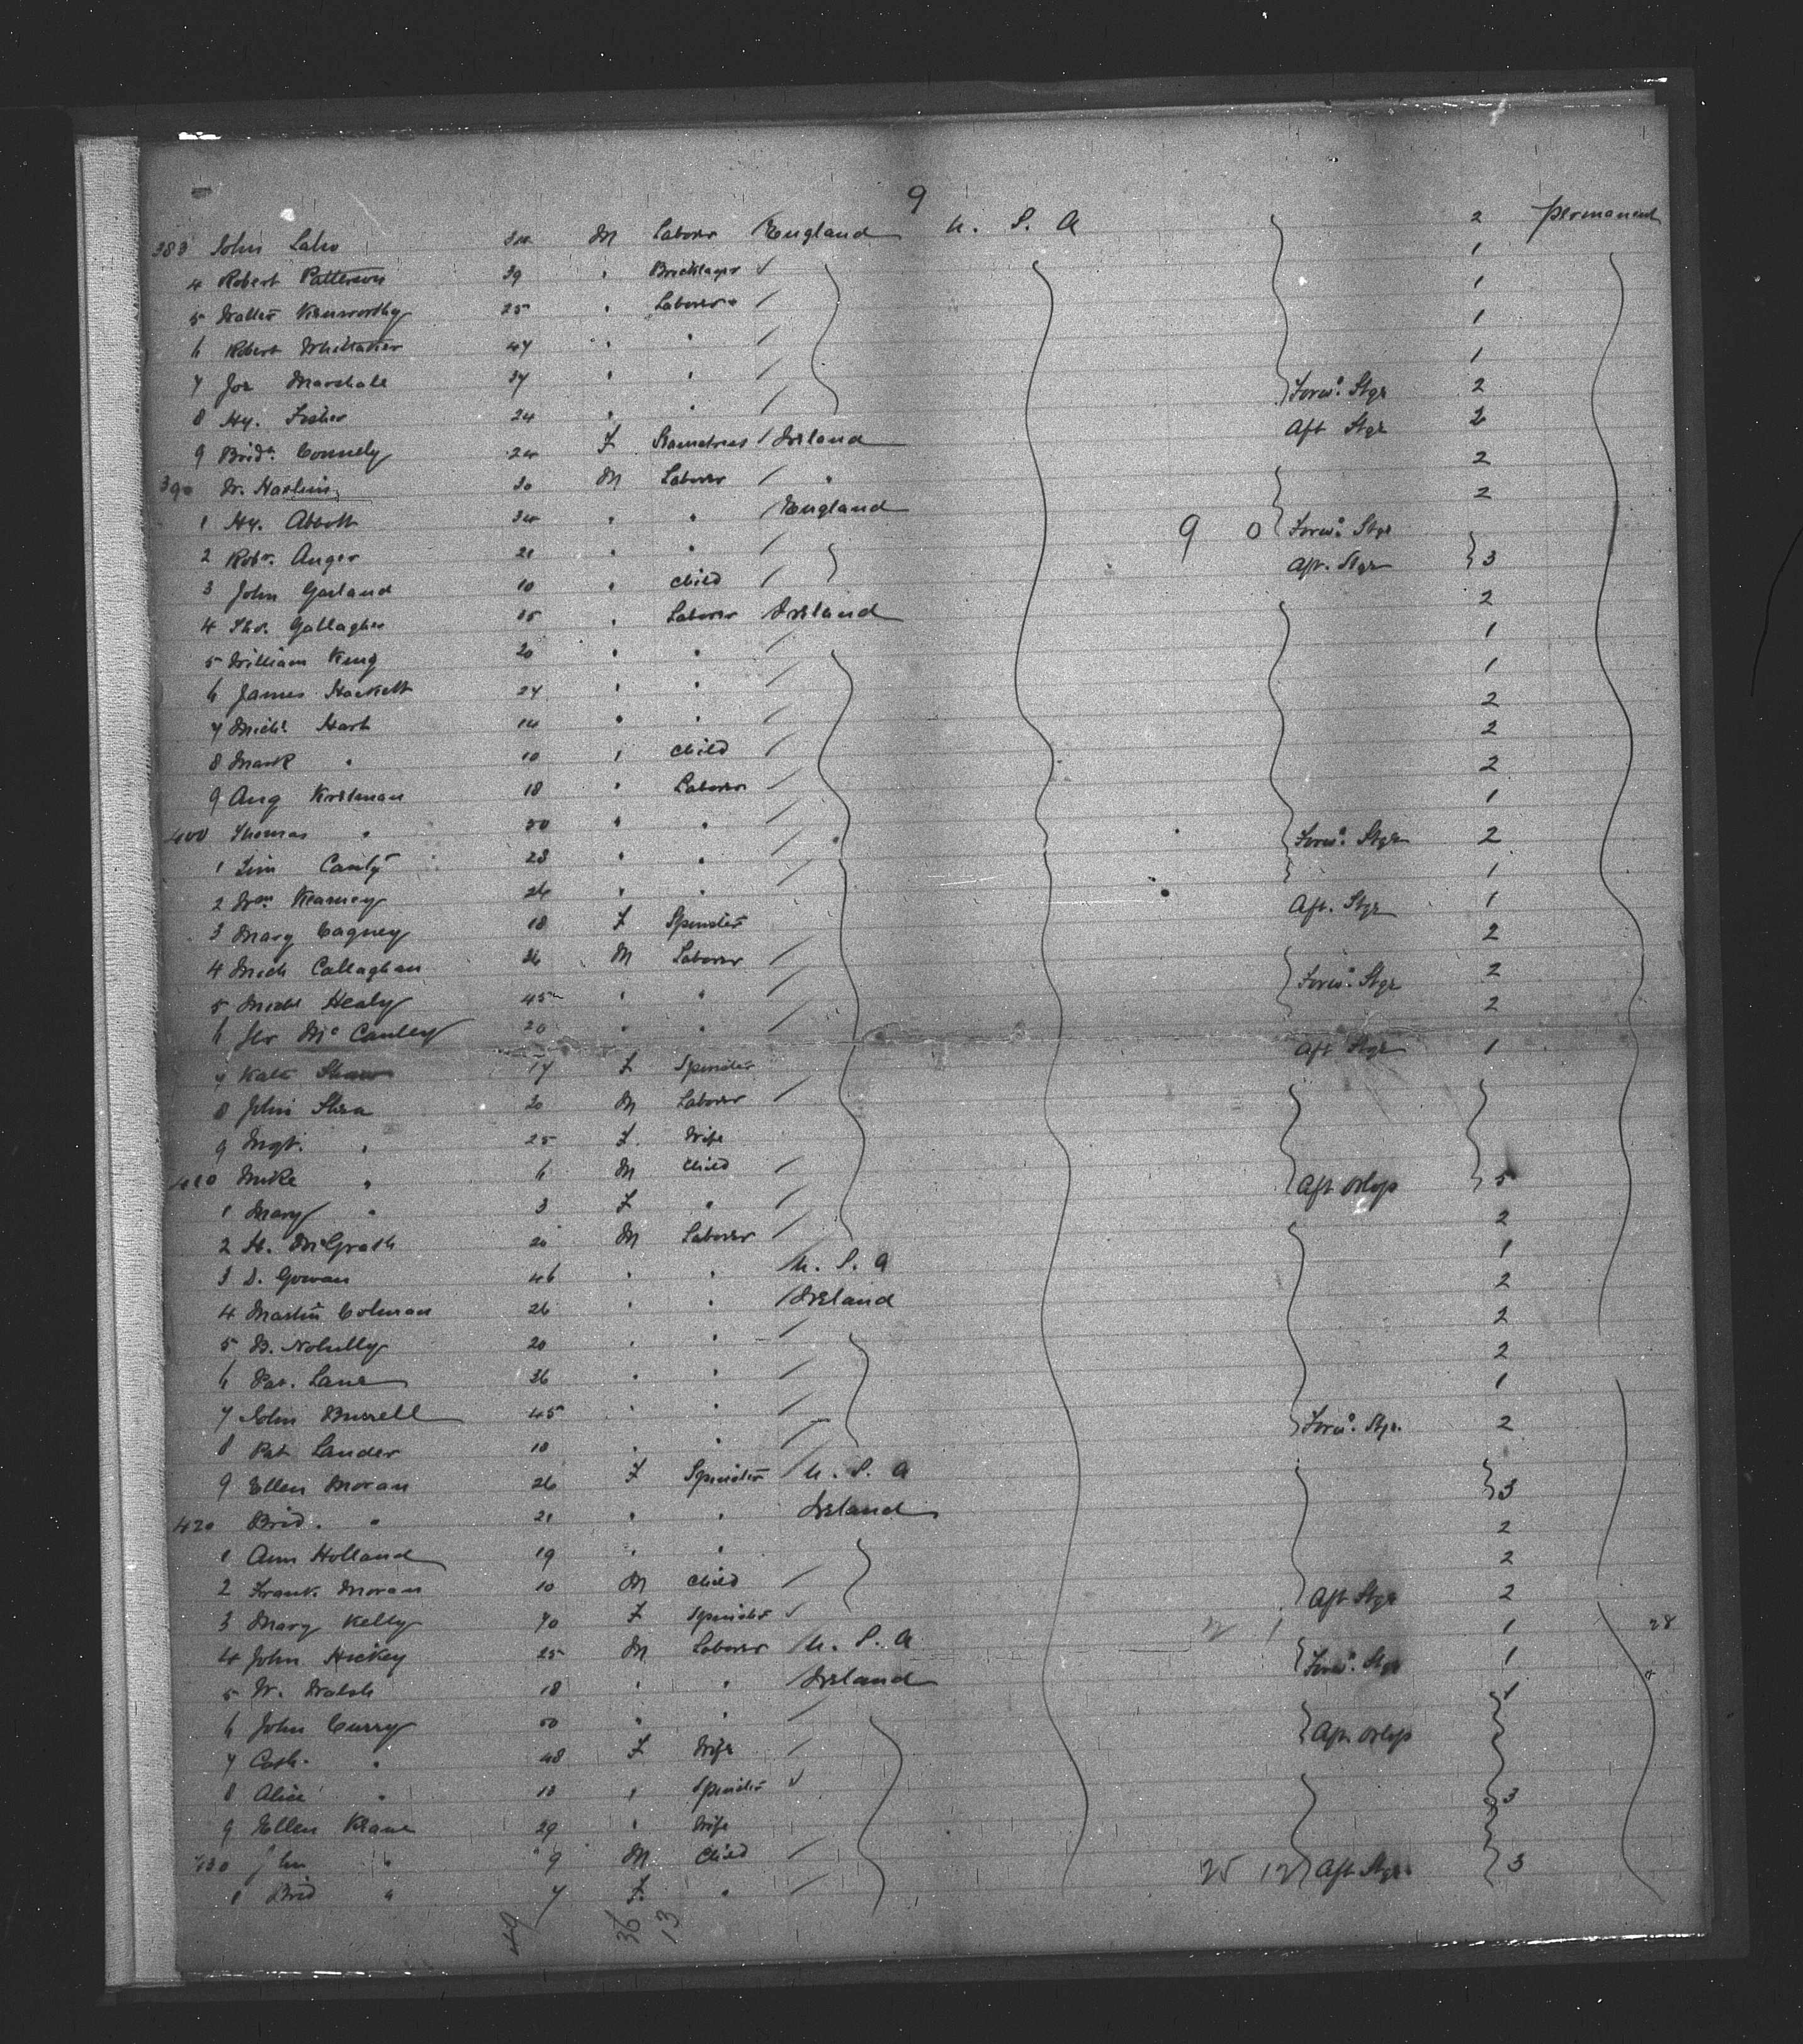 9
383 John M Laborer England U. S. A 2 permanent
4 Robert Patterson 39 " Bricklayer ✓ 1
5 Walter Kenworthy 25 " Laborer / 1
6 Robert Whittaker 47 " " / 1
7 Jos Marshall 37 " " / Forwd. Stge 1
8 Hy. Fisher 24 " " / 2
9 Bridt. Connely 24 F / Ireland Aft Stge 2
390 W. 30 M Laborer / " 2
1 Hy. Abbott " " / England Forwd. Stge 2
2 Robt. Anger 21 " " / 9 0
3 John Garland 10 " Child / Aft. Stge 3
4 Thos. Gallagher " Laborer Ireland 2
5 William King 20 " " / 1
6 James Hackett 24 " " / 1
7 Michl. Hart 14 " " / 2
8 Mark " 10 " Child / 2
9 Aug 18 " Laborer / 2
400 Thomas " 50 " " / 1
1 Tim 23 " " / Forwd. Stge 2
2 Wm Kearney 24 " " / 1
3 Mary Cagney 18 F Spinster Aft. Stge 1
4 Mich Callaghan 26 M Laborer / 2
5 Michl Healy 45 " " / Forwd. Stge 2
6 Jer Mc Cauley 20 " " / 2
7 Kate Shaw 17 F Spinster Aft Stge 1
8 John Shea 20 M Laborer /
9 Mgt. " 25 F. Wife
410 Mike " 6 M Child / Aft Orlop 5
1 Mary " 3 F " /
2 H. McGrath 20 M Laborer / 2
3 D. Gowan 46 " " / U. S. A 1
4 Martin Colman 26 " " / Ireland 2
5 B. 20 " " / 2
6 Pat. Lane 36 " " / 2
7 John Burrell 45 " " / 1
8 Pat Lander 18 " " / Forwd. Stge. 2
9 Ellen Moran 26 F Spinster / U. S. A
420 Brid. " 21 " " Ireland 3
1 Ann Holland 19 " " 2
2 Frank. Moran 10 M Child / 2
3 Mary Kelly 70 F Spinster ✓ Aft Stge 2
4 John Hickey 25 M Laborer / U. S. A 1 28
5 W. Walsh 18 " " / Ireland Forwd. Stge 1
6 John Curry 50 " " / 1
7 Cath. " 48 F Wife / Aft. Orlop
8 Alice " 18 " Spinster ✓ 3
9 Ellen Keane 29 " Wife
430 John " 9 M Child / 25 12 Aft Stge 3
1 Brid " 7 F. " /
49 36 13